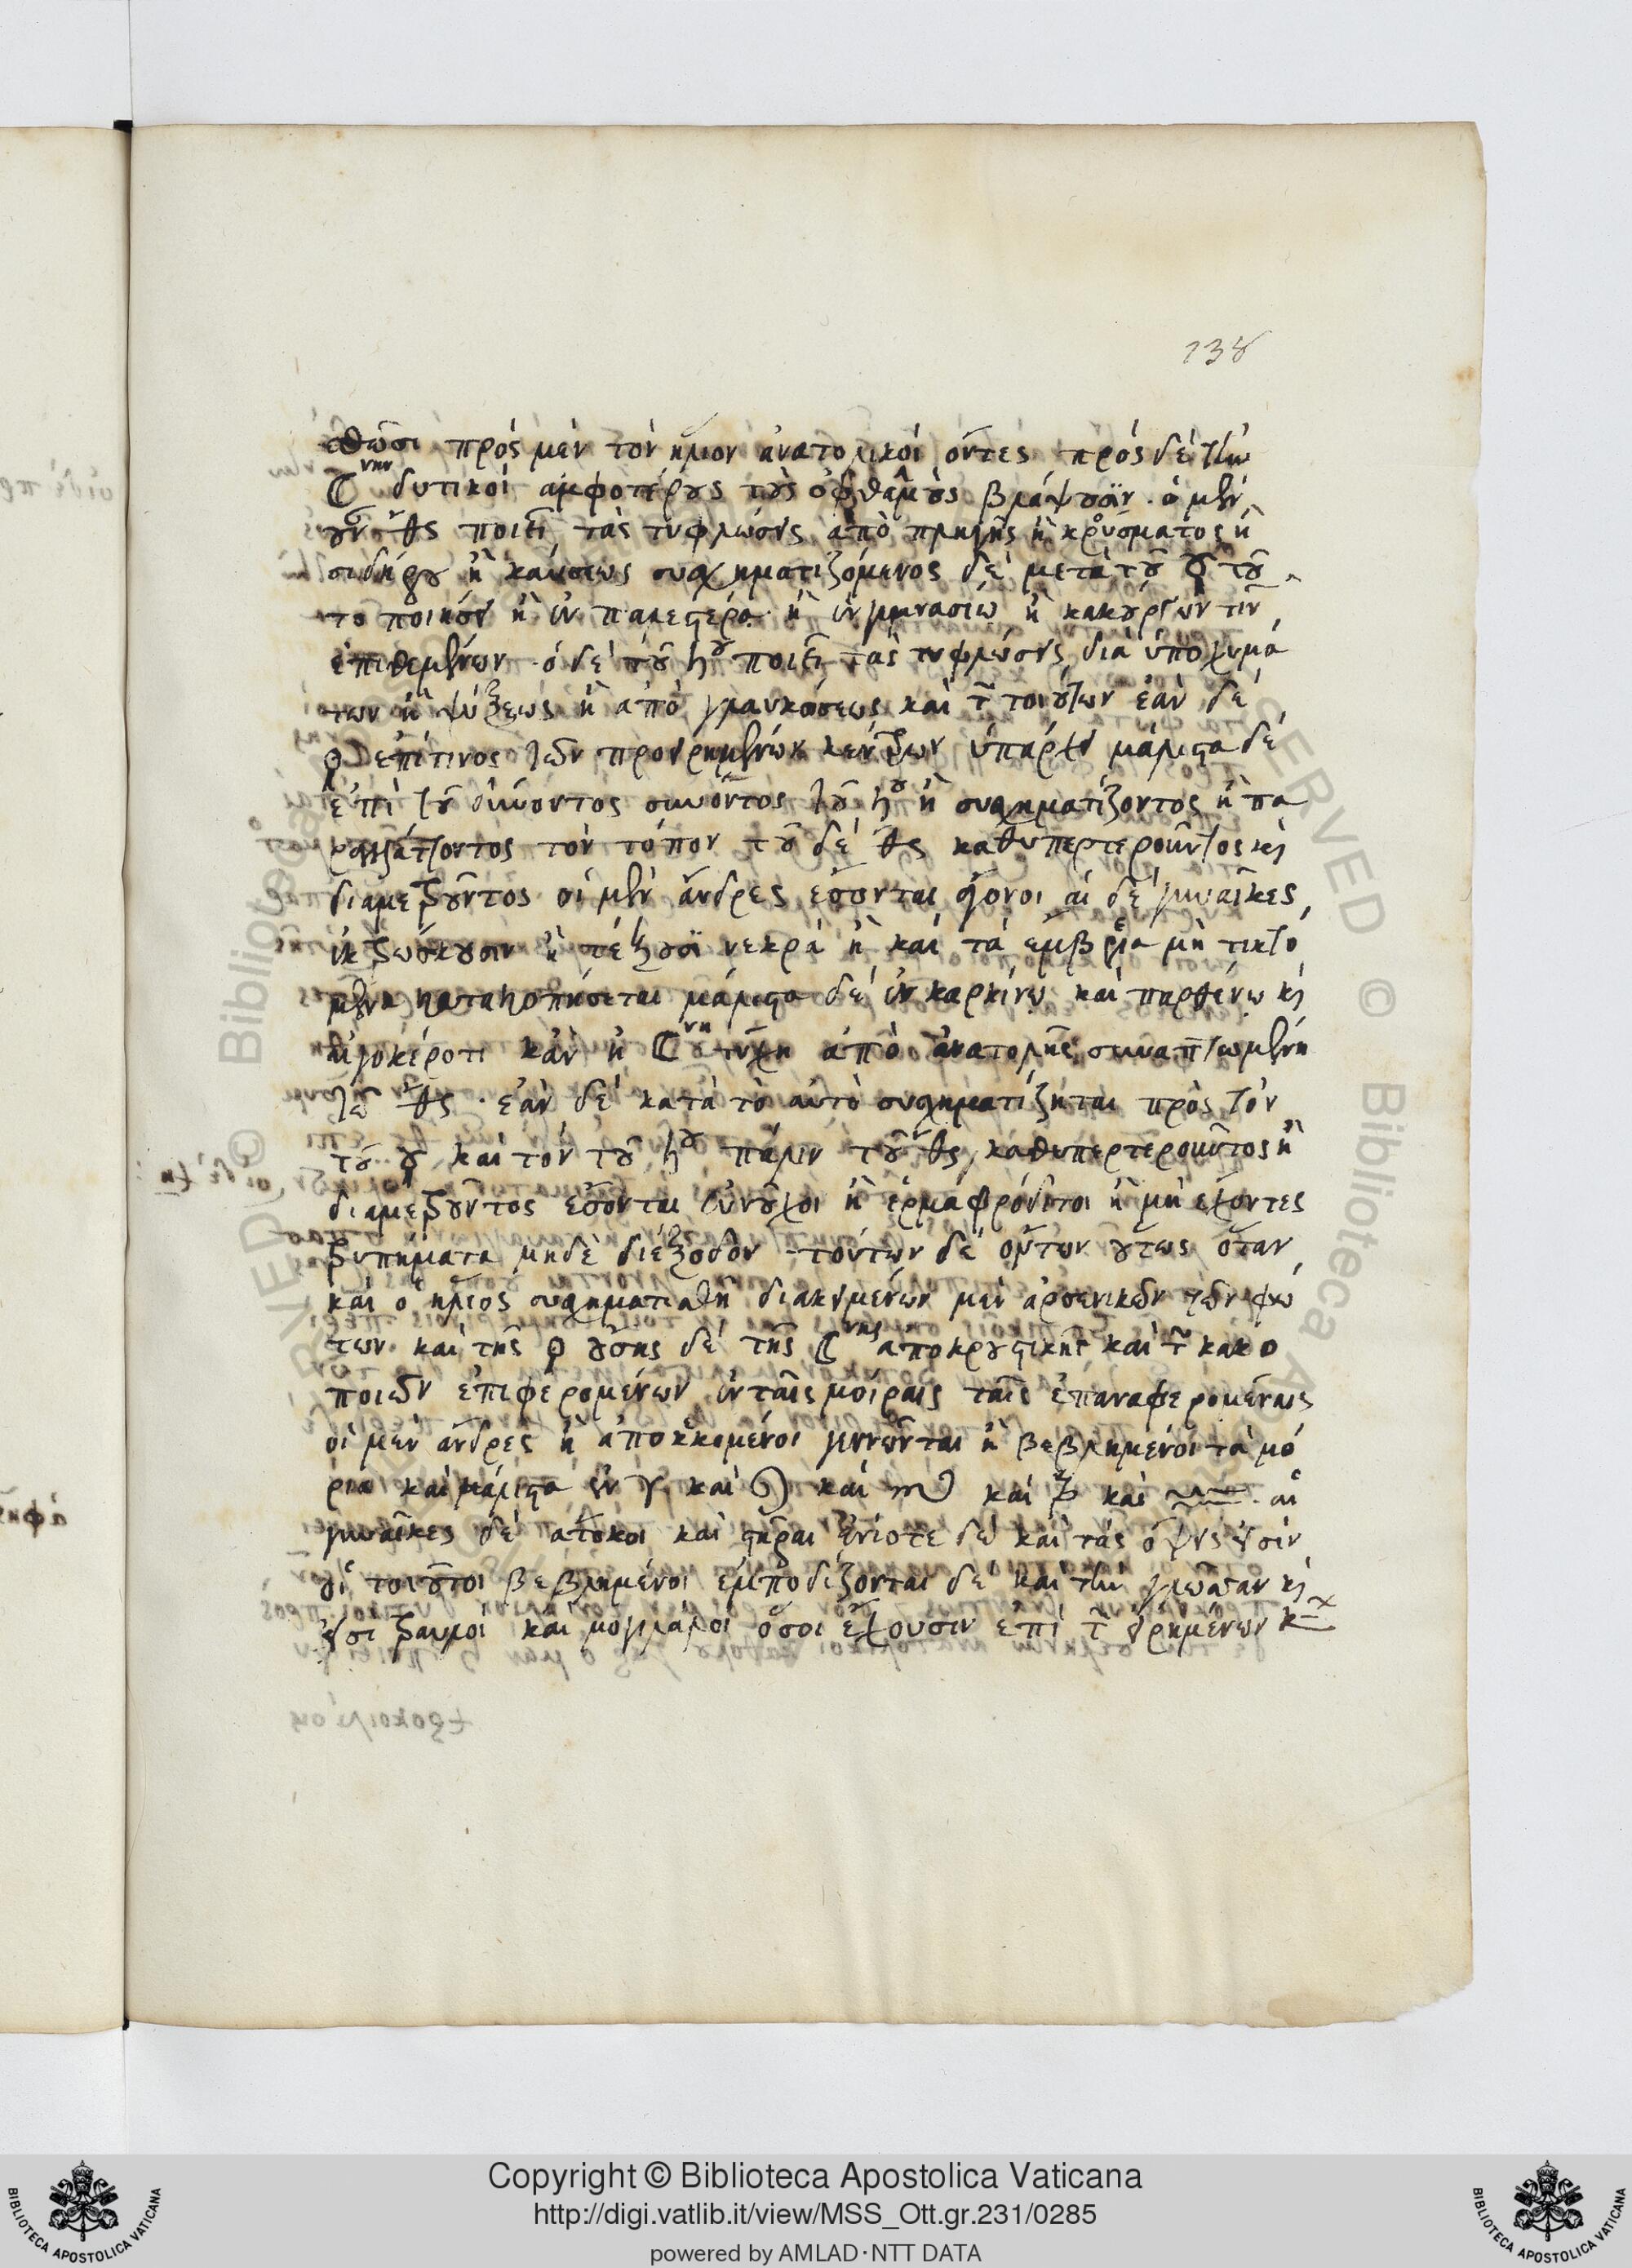 138
εθῶσι πρὸς μὲν τὸν ἥλιον ἀνατολικοὶ ὄντες πρὸς δὲ τὴν
☾νην δυτικοὶ ἀμφοτέρους τοὺς ὀφθαλμοὺς βλάψουσιν · ὁ μὲν
οὖν ἄρης ποιεῖ τὰς τυφλώσεις ἀπὸ πληγῆς ἢ κρούσματος ἢ
σιδήρου ἢ καύσεως συσχηματιζόμενος δὲ μετὰ τοῦ ☿ τοῦ
το ποιήσει ἢ ἐν παλαίστρα ἢ ἐν γυμνασίω ἢ κακούργων τιν
ἐπιθεμένων · ὁ δὲ τοῦ ♄ου ποιεῖ τὰς τυφλώσεις διὰ ὑποχυμά
των ἢ ψύξεως ἢ ἀπὸ γλαυκώσεως καὶ τῶν τοιούτων ἐὰν δὲ
♀ ἐπί τινος τῶν προειρημένων κέντρων ὑπάρχει μάλιστα δὲ
ἐπὶ τοῦ δύνοντος συνόντος τοῦ ♄ου ἢ συσχηματίζοντος ἢ πα
ραλλάττοντος τὸν τόπον τοῦ δὲ ἄρης καθυπερτεροῦντος καὶ
διαμετροῦντος οἱ μὲν ἄνδρες ἔσονται ἄγονοι αἱ δὲ γυναῖκες
ἐκτρώσκουσιν ἢ τέξουσι νεκρὰ ἢ καὶ τὰ ἔμβρυα μὴ τικτό
μενα κατακοπήσεται μάλιστα δὲ ἐν καρκίνω καὶ παρθένω καὶ
αἰγοκέροτι κἂν ἡ ☾νη τύχη ἀπὸ ἀνατολῆς συναπτωμένη
τῶ ἄρης · ἐὰν δὲ κατὰ τὸ αὐτὸ συσχηματίζηται πρὸς τὸν
τοῦ ☿ καὶ τὸν τοῦ ♄ου πάλιν τοῦ ἄρης καθυπερτεροῦντος ἢ
διαμετροῦντος ἔσονται εὐνοῦχοι ἢ ἑρμαφρόδιτοι ἢ μὴ ἔχοντες
τρυπήματα μηδὲ διέξοδον · τούτων δὲ ὄντων οὕτως ὅταν
καὶ ὁ ἥλιος συσχηματισθῆ διακειμένων μὲν ἀρσενικῶν τῶν φώ
των καὶ τῆς ♀ οὔσης δὲ τῆς ☾νης ἀποκρουστικῆς καὶ τῶν κακο
ποιῶν ἐπιφερομένων ἐν ταῖς μοίραις ταῖς ἐπαναφερομέναις
οἱ μὲν ἄνδρες ἢ ἀποκεκομένοι γεννῶνται ἢ βεβλημένοι τὰ μό
ρια καὶ μάλιστα ἐν ♈ καὶ ♌ καὶ ♏ καὶ ♑ καὶ ♒ · αἱ
γυναῖκες δὲ ἄτοκοι καὶ στεῖραι ἐνίοτε δὲ καὶ τὰς ὄψεις εἰσὶν
οἱ τοιοῦτοι βεβλημένοι ἐμποδίζονται δὲ καὶ τὴν γλῶσσαν καὶ
εἰσι τραυλοὶ καὶ μογιλάλοι ὅσοι ἔχουσιν ἐπὶ τῶν εἰρημένων
Copyright © Biblioteca Apostolica Vaticana
http://digi.vatlib.it/view/MSS_Ott.gr.231/0285
powered by AMLAD·NTT DATA